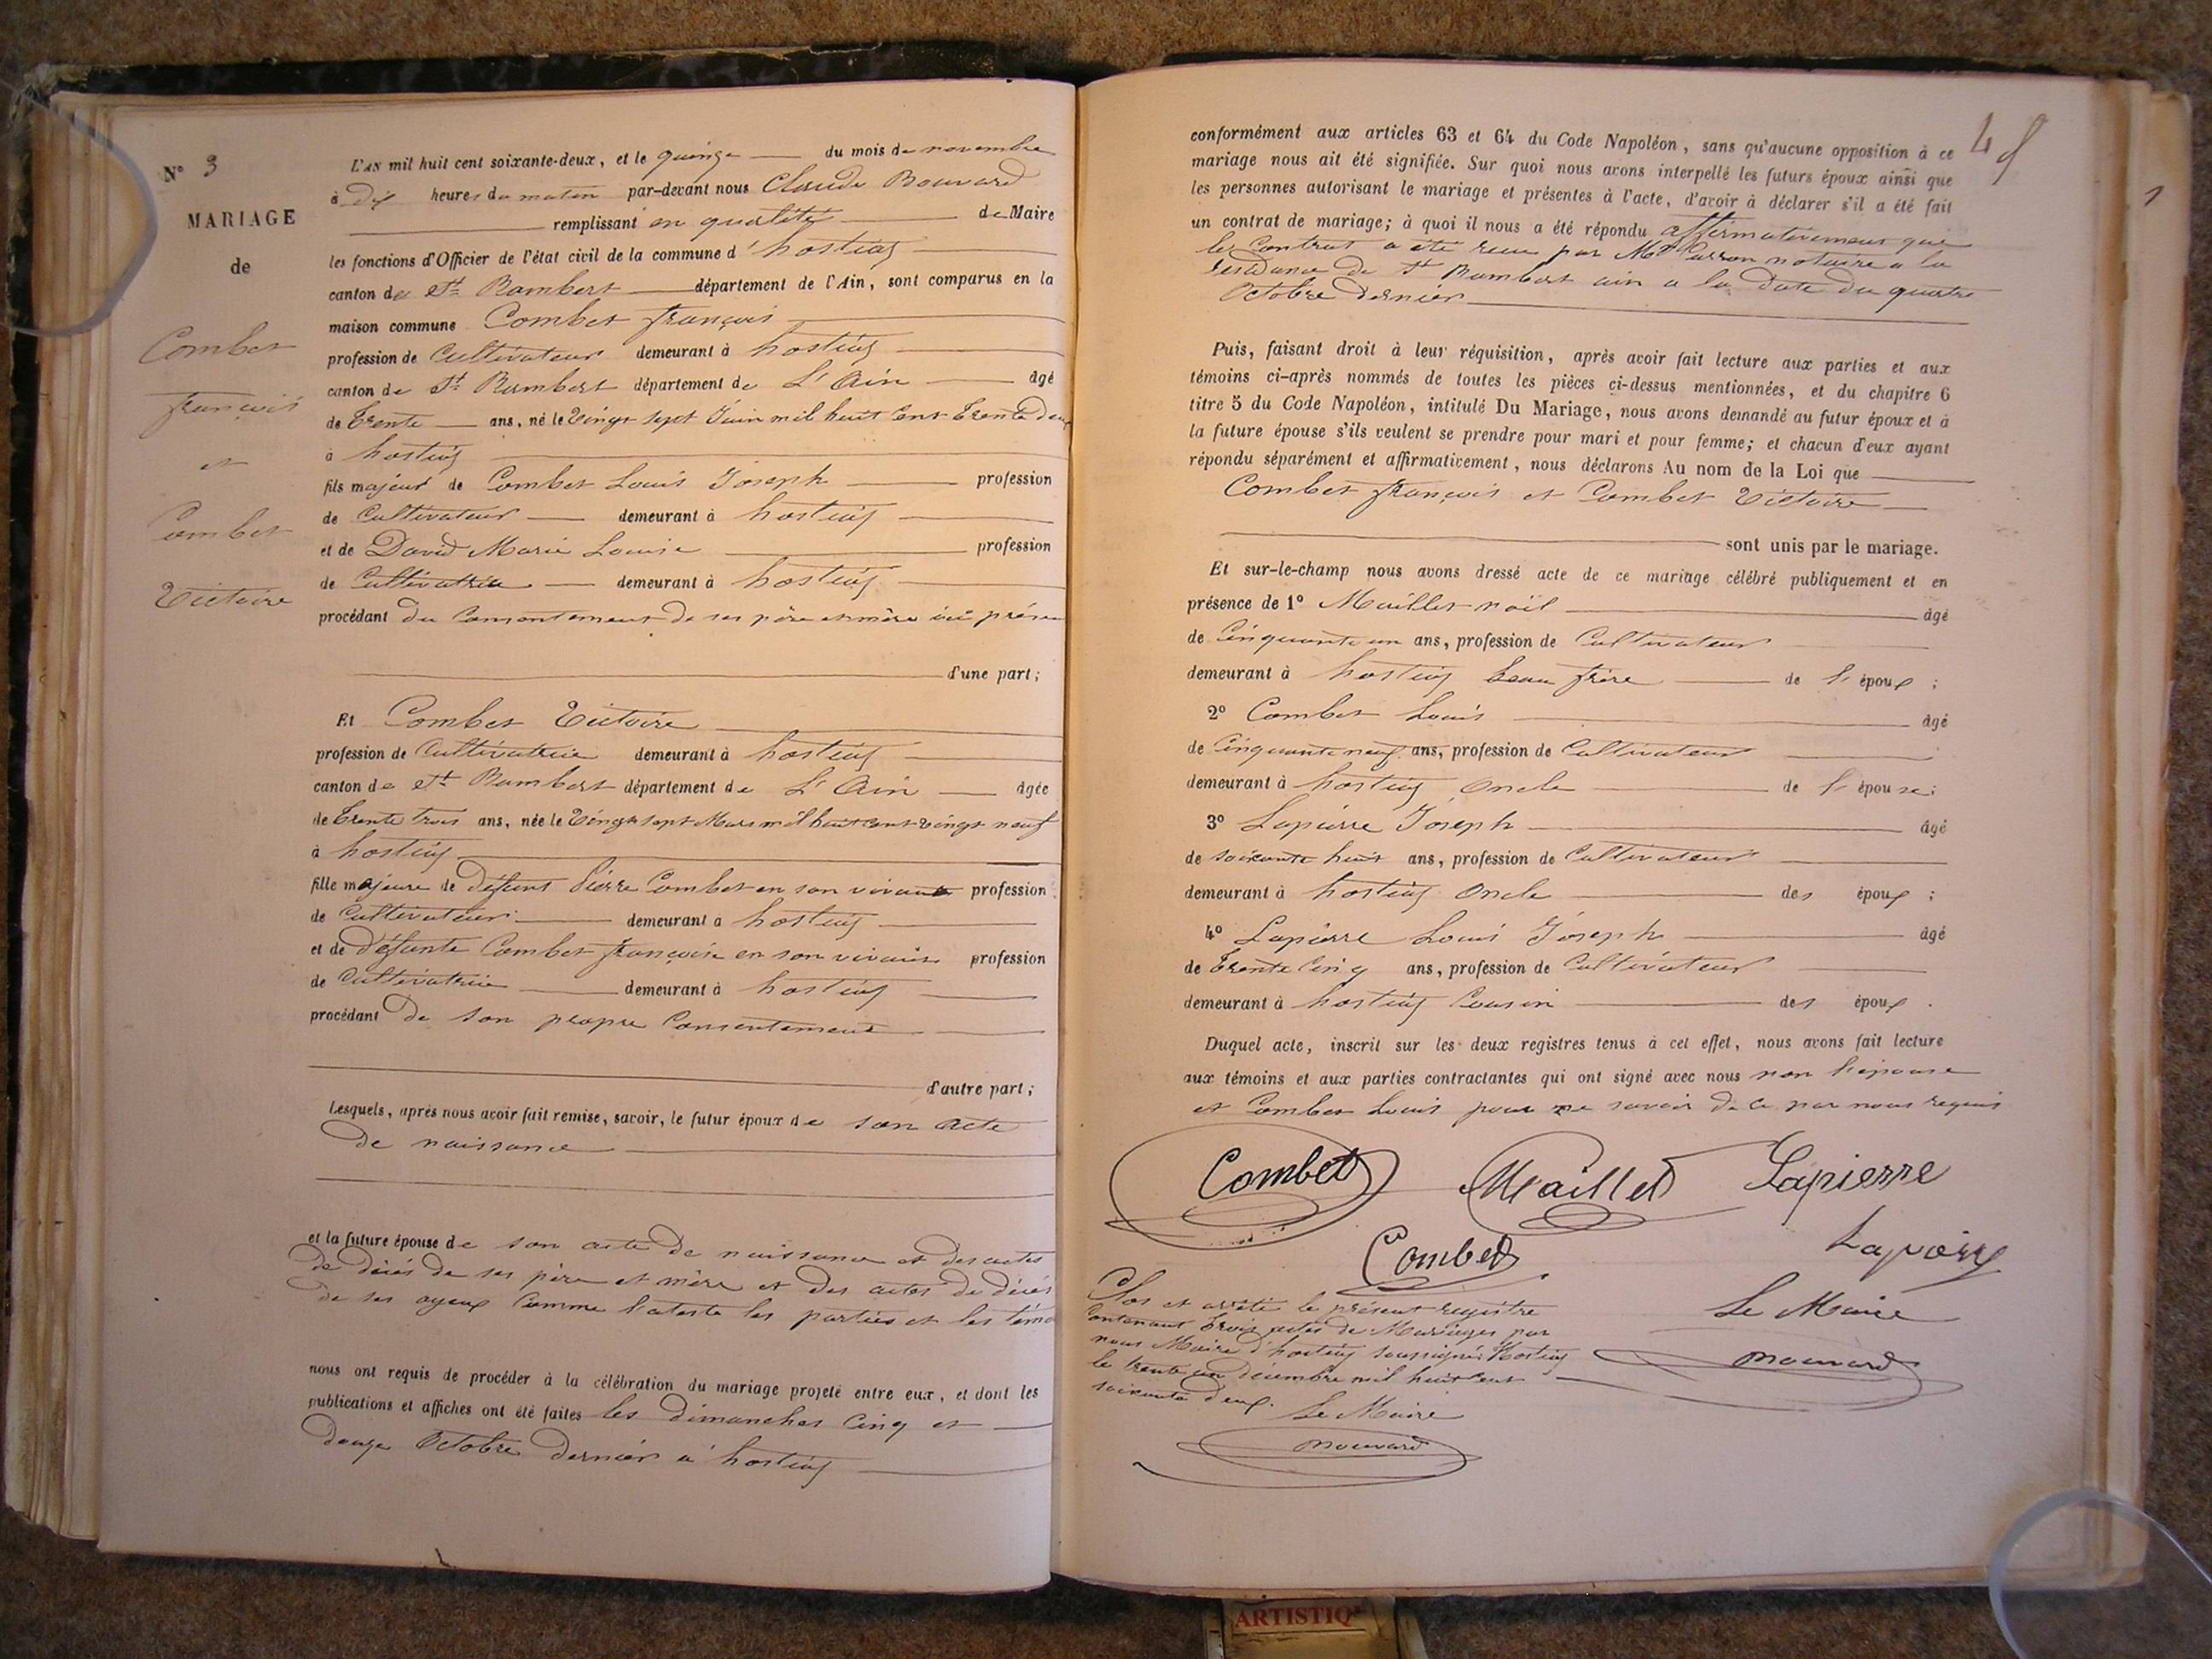 N° 3
MARIAGE
de
Combet
françois
et
Combet
Victoire
L'AN mil huit cent soixante-deux, et le quinze du mois de novembre
à dix heures du matin par-devant nous Claude Bouvard
remplissant en qualité de Maire
les fonctions d'Officier de l'état civil de la commune d'hostias
canton de St Rambert département de l'Ain, sont comparus en la
maison commune Combet françois
profession de Cultivateur demeurant à hostias
canton de St Rambert département de L'Ain âgé
de trente ans, né le Vingt sept Juin mil huit Cent trente deux
à hostias
fils majeur de Combet Louis Joseph profession
de Cultivateur demeurant à hostias
et de David Marie Louise profession
de Cultivatrice demeurant à hostias
procédant du Consentement de ses père et mère ici présen
d'une part;
Et Combet Victoire
profession de Cultivatrice demeurant à hostias
canton de St Rambert département de L'Ain âgée
de trente trois ans, née le Vingt sept Mars mil huit cent vingt neuf
à hostias
fille majeure de défunt Pierre Combet en son vivant profession
de Cultivateur demeurant à hostias
et de défunte Combet françoise en son vivant profession
de Cultivatrice demeurant à hostias
procédant de son propre Consentement
d'autre part;
Lesquels, après nous avoir fait remise, savoir, le futur époux de son acte
de naissance
et la future épouse de son acte de naissance et des actes
de décès de ses père et mère et des actes de décès
de ses ayeux Comme l'ateste les parties et les témo
nous ont requis de procéder à la célébration du mariage projeté entre eux, et dont les
publications et affiches ont été faites les dimanches Cinq et
douze Octobre dernier à hostias
48
conformément aux articles 63 et 64 du Code Napoléon, sans qu'aucune opposition à ce
mariage nous ait été signifiée. Sur quoi nous avons interpellé les futurs époux ainsi que
les personnes autorisant le mariage et présentes à l'acte, d'avoir à déclarer s'il a été fait
un contrat de mariage; à quoi il nous a été répondu affirmativement que
le Contrat a été reçu par Me notaire a la
residence de St Rambert ain a la date du quatre
Octobre dernier
Puis, faisant droit à leur réquisition, après avoir fait lecture aux parties et aux
témoins ci-après nommés de toutes les pièces ci-dessus mentionnées, et du chapitre 6
titre 5 du Code Napoléon, intitulé Du Mariage, nous avons demandé au futur époux et à
la future épouse s'ils veulent se prendre pour mari et pour femme; et chacun d'eux ayant
répondu séparément et affirmativement, nous déclarons Au nom de la Loi que
Combet françois et Combet Victoire
sont unis par le mariage.
Et sur-le-champ nous avons dressé acte de ce mariage célébré publiquement et en
présence de 1° Maillet noël âgé
de Cinquante un ans, profession de Cultivateur
demeurant à hostias beau frère de l'époux;
2° Combet Louis âgé
de Cinquante neuf ans, profession de Cultivateur
demeurant à hostias Oncle de l'épouse;
3° Lapierre Joseph âgé
de soixante huit ans, profession de Cultivateur
demeurant à hostias Oncle des époux;
4° Lapierre Louis Joseph âgé
de trente Cinq ans, profession de Cultivateur
demeurant à hostias Cousin des époux.
Duquel acte, inscrit sur les deux registres tenus à cet effet, nous avons fait lecture
aux témoins et aux parties contractantes qui ont signé avec nous non l'épouse
et Combet Louis pour ne savoir de ce par nous requis
Combet Maillet Lapierre
Combet Lapierre
Clos et arrêté le présent registre
Contenant trois actes de Mariages par
nous Maire d'hostias soussigné Hostias
le trente un Décembre mil huit cent
soixante deux.
Le Maire
Bouvard
Le Maire
Bouvard
ARTISTIQ